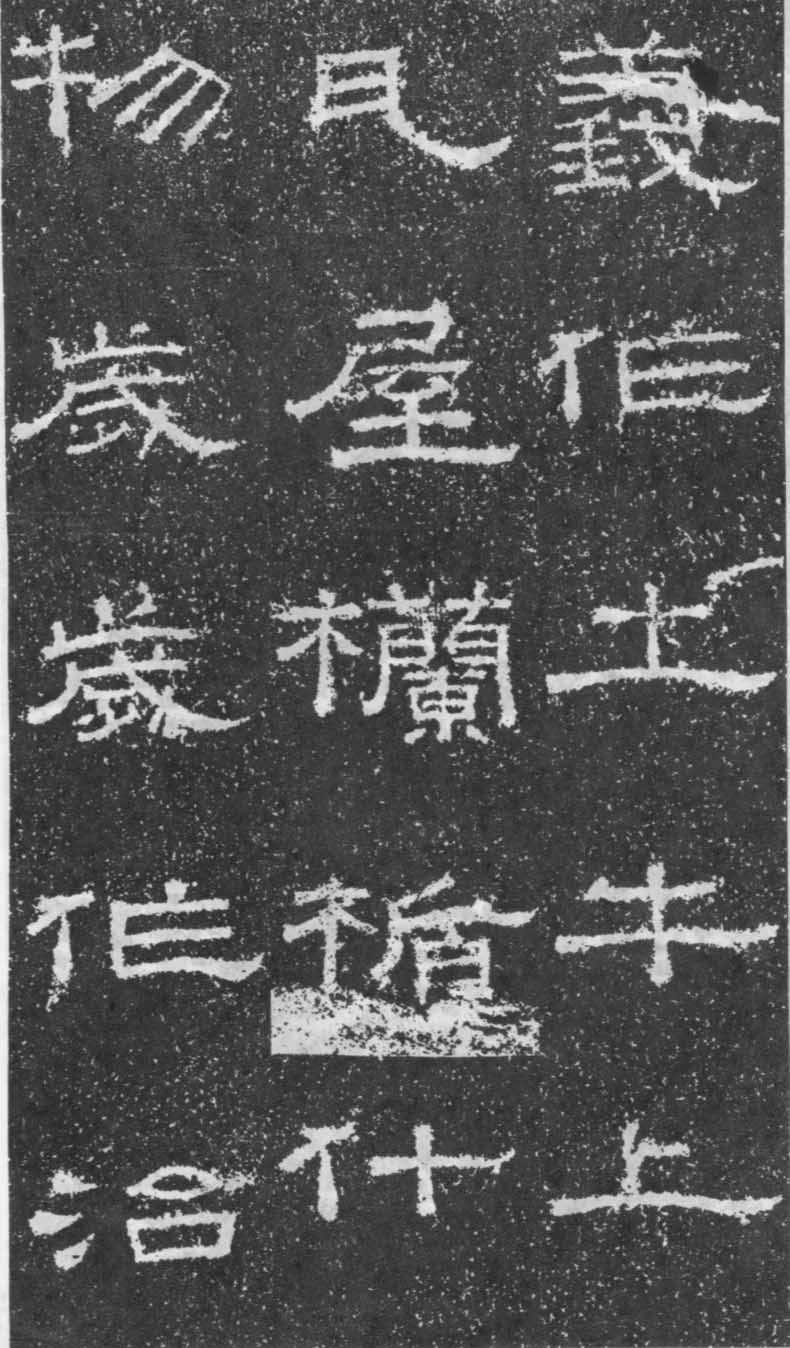 義作土牛上
瓦屋欄楯什
物歲歲作治